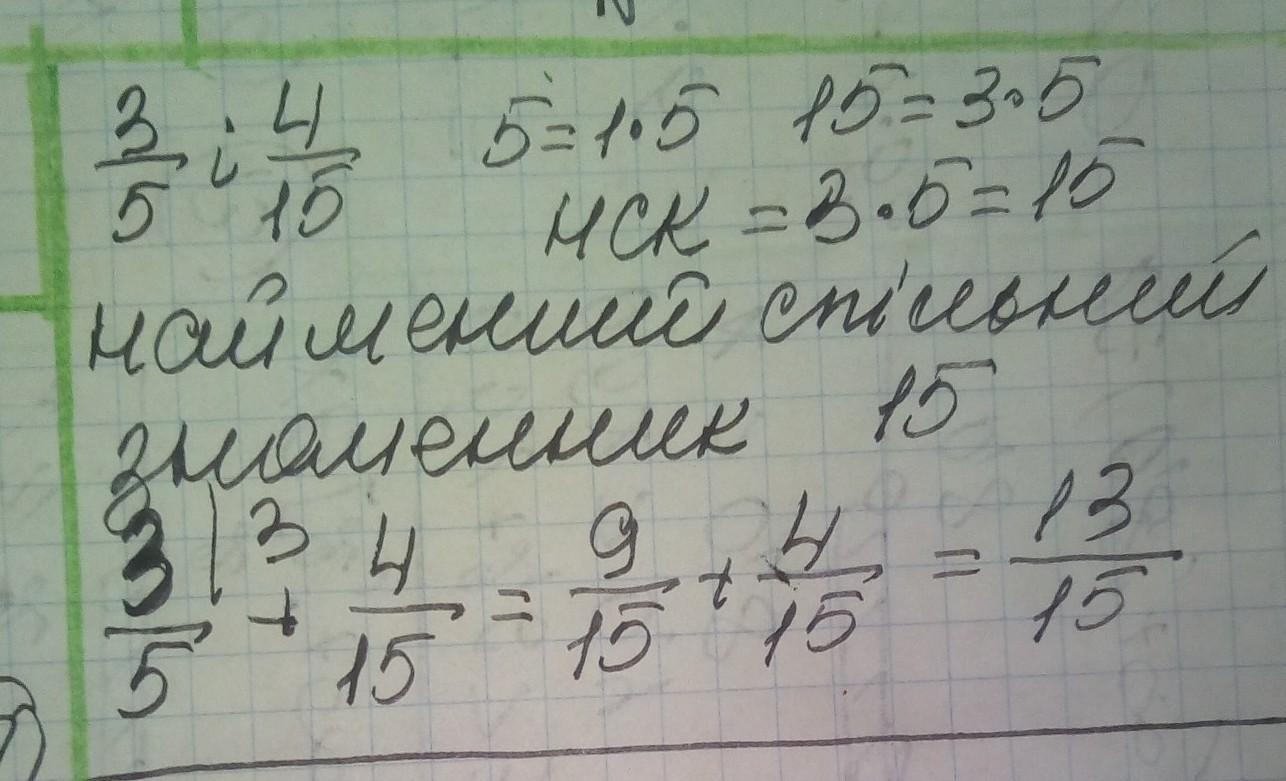 3/5 і 4/15 5=1·5 15=3·5
НСК = 3·5=15
найменший спільний
знаменник 15
3/5 |3 + 4/15 = 9/15 + 4/15 = 13/15